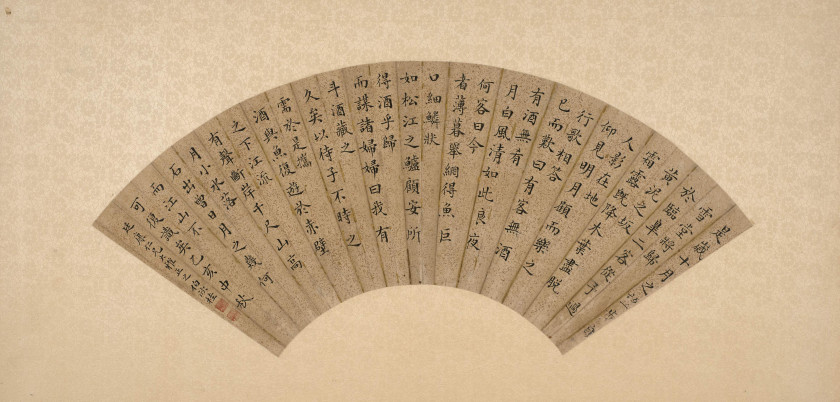 是歲十月之望步自
雪堂將歸
於臨皋二客從予過
黃泥之坂
霜露既降木葉盡脫
人影在地
仰見明月顧而樂之
行歌相答
已而歎曰有客無酒
有酒無肴
月白風清如此良夜
何客曰今
者薄暮舉網得魚巨
口細鱗狀
如松江之鱸顧安所
得酒乎歸
而謀諸婦婦曰我有
斗酒藏之
久矣以待子不時之
需於是攜
酒與魚復遊於赤壁
之下江流
有聲斷岸千尺山高
月小水落
石出曾日月之幾何
而江山不
可復識矣乙亥中秋
仁兄大雅正之